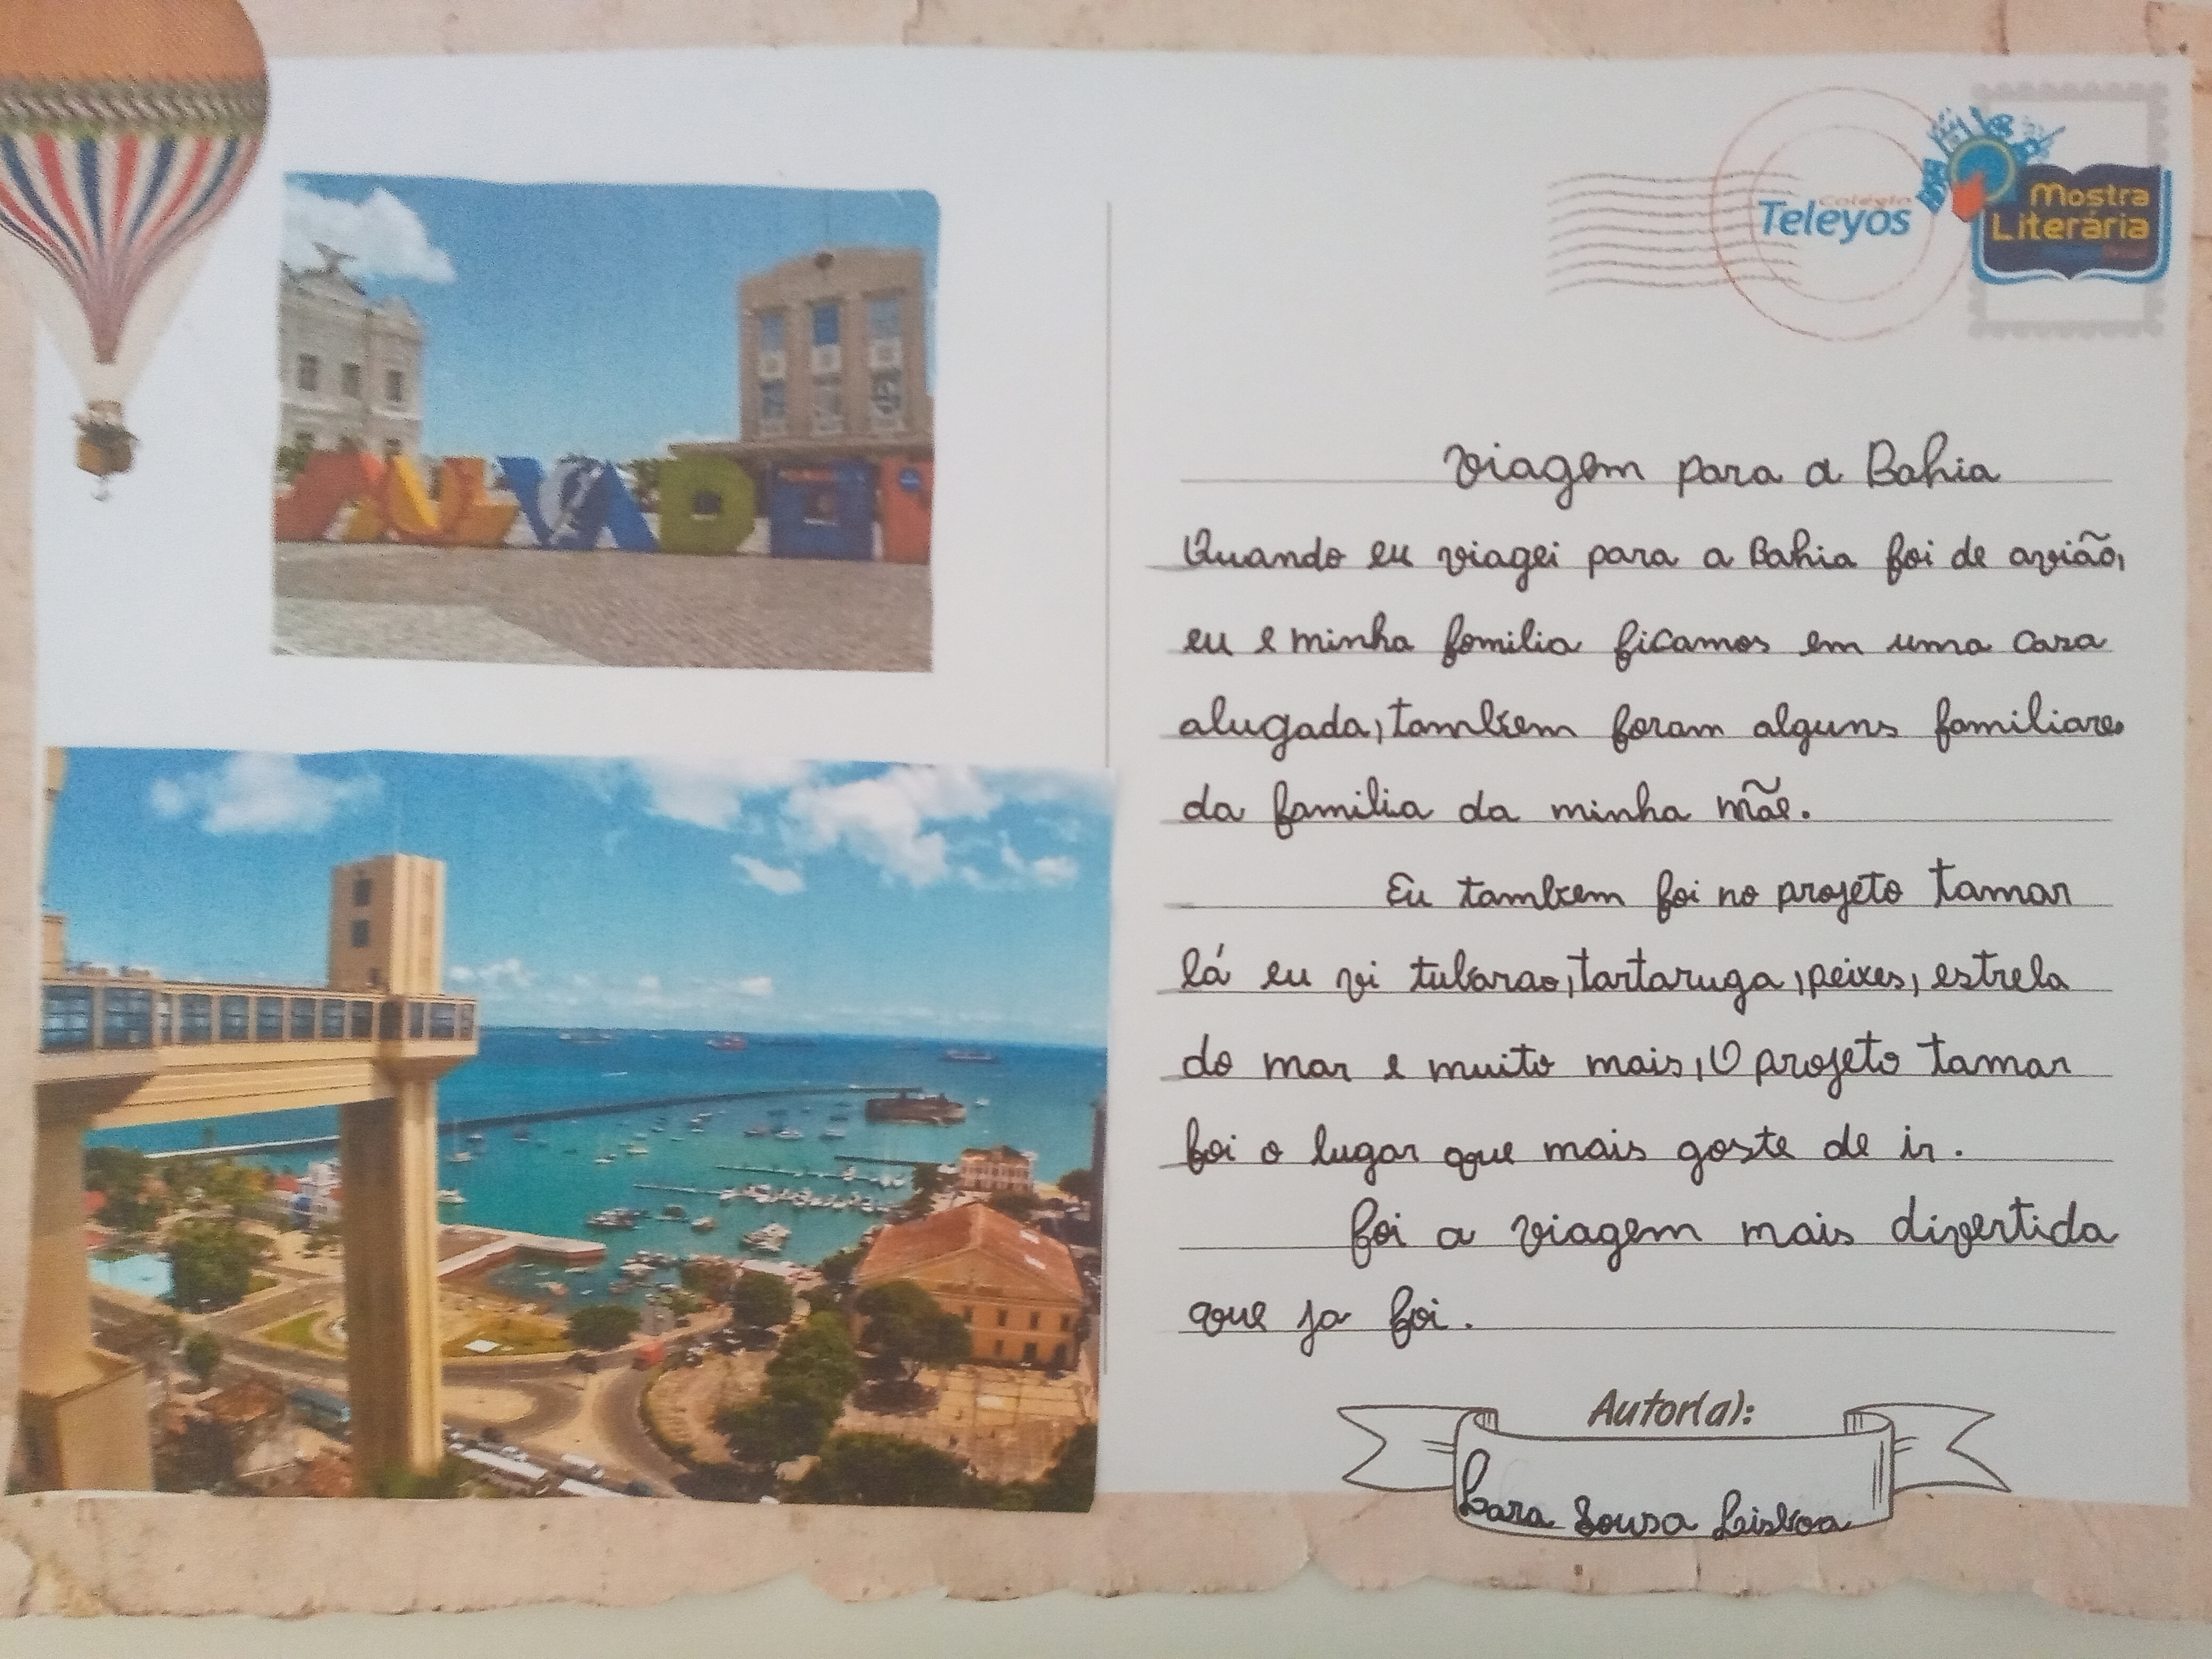 Colégio
Teleyos
Mostra
Literária
Viagem para a Bahia
Quando eu viagei para a Bahia foi de avião,
eu e minha familia ficamos em uma casa
alugada, tambem foram alguns familiares
da familia da minha mãe.
Eu tambem foi no projeto tamar
lá eu vi tubarao, tartaruga, peixes, estrela
do mar e muito mais, O projeto tamar
foi o lugar que mais goste de ir.
foi a viagem mais divertida
que ja foi.
Autor(a):
Lara Sousa Lisboa